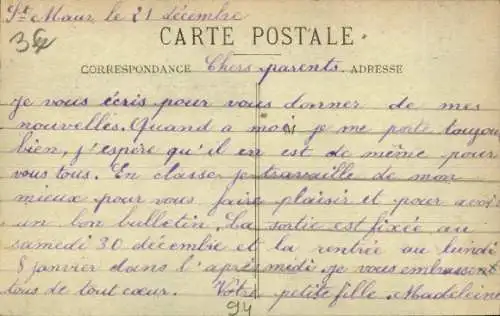 St Maur, le 21 décembre
CARTE POSTALE
CORRESPONDANCE Chers parents. ADRESSE
je vous écris pour vous donner de mes
nouvelles. Quand a moi je me porte toujou
bien, j'espère qu'il en est de même pour
vous tous. En classe je travaille de mon
mieux pour vous faire plaisir et pour avoir
un bon bulletin. La sortie est fixée au
samedi 30 décembre et la rentrée au lundi
8 janvier dans l'après midi. je vous embrassent
tous de tout cœur. Votre petite fille. Madeleine
94